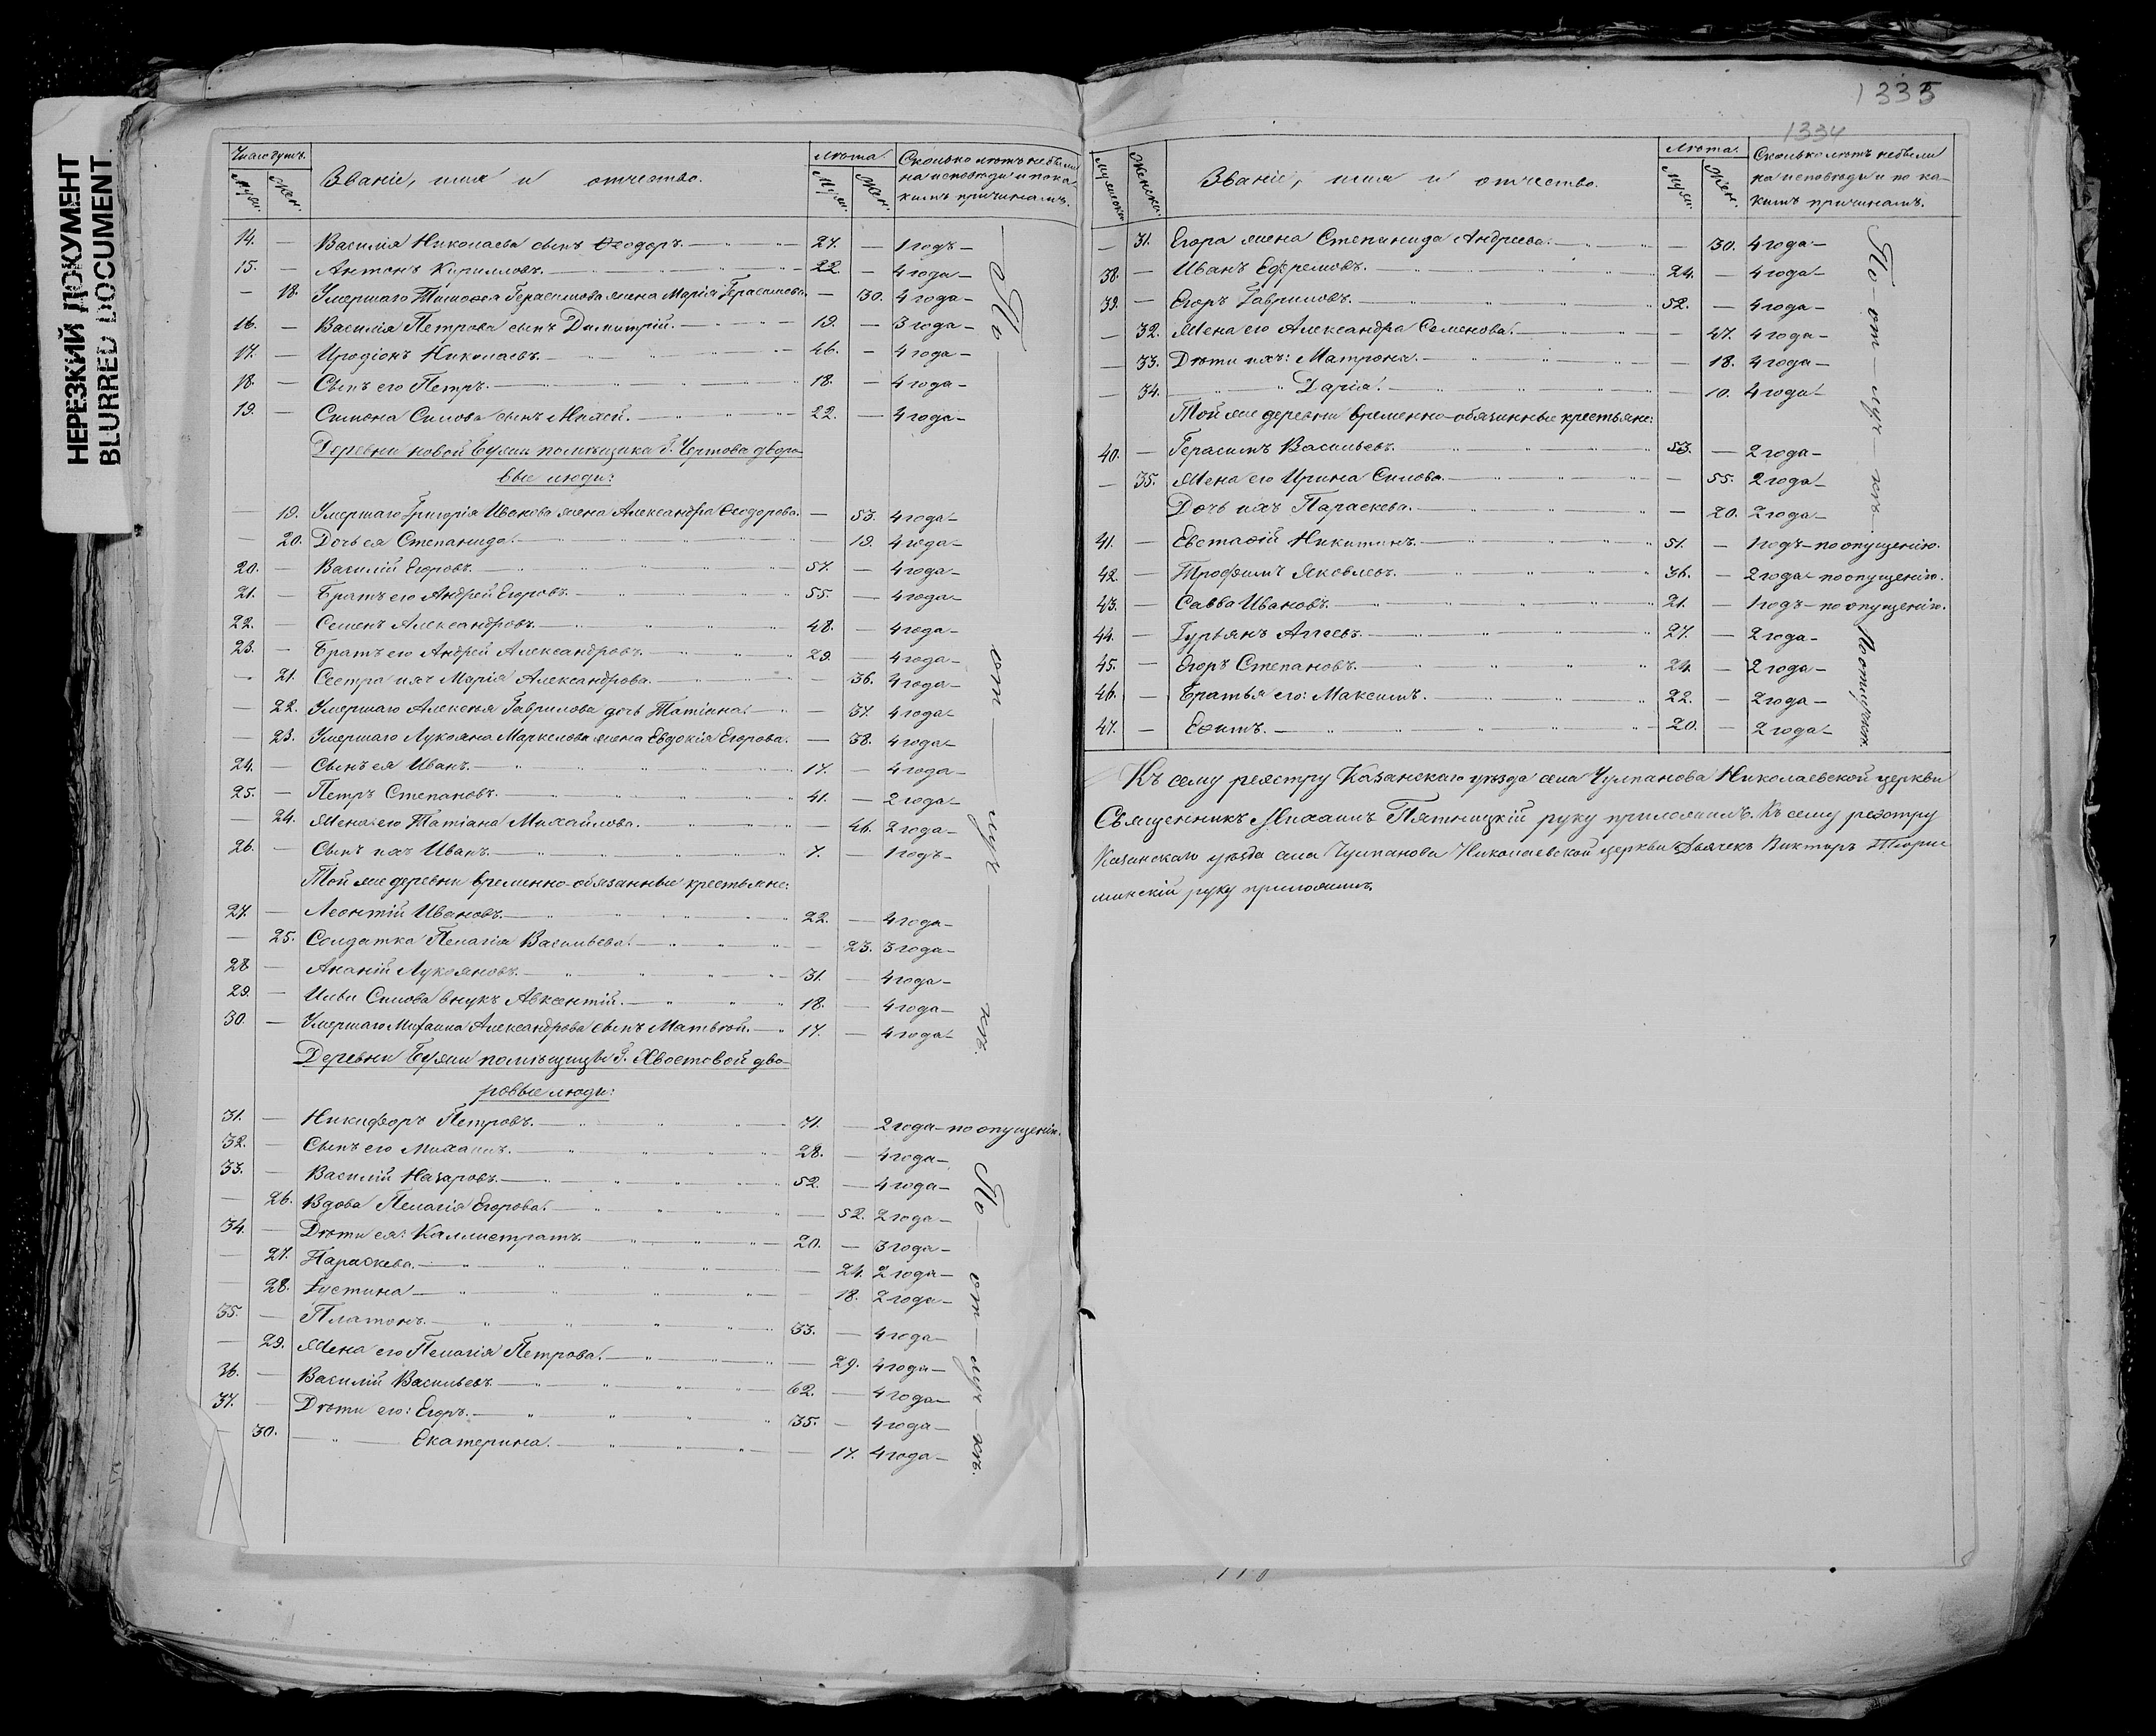 НЕРЕЗКИЙ ДОКУМЕНТ
BLURRED DOCUMENT
Число душъ.
Муж.
Жен.
Званіе, имя и отчество.
Лѣта
Муж.
Жен.
Сколько лѣтъ небыли
на исповѣди и по ка-
кимъ причинамъ.
14. — Василія Николаева сынъ Ѳеодоръ. 27. — 1 годъ —
15. — Антонъ Кирилловъ. 22. — 4 года —
— 18. Умершаго Тимоѳея Герасимова жена Марія Герасимова. — 30. 4 года —
16. — Василія Петрова сынъ Димитрій. 19. — 3 года —
17. — Иродіонъ Николаевъ. 46. — 4 года —
18. — Сынъ его Петръ. 18. — 4 года —
19. — Симона Силова сынъ Михей. 22. — 4 года —
Деревни новой Бужи помѣщика Г. Чертова дворо-
вые люди:
— 19. Умершаго Григорія Иванова жена Александра Ѳеодорова. — 53. 4 года —
— 20. Дочь ея Степанида. — 19. 4 года —
20. — Василій Егоровъ. 57. — 4 года —
21. — Братъ его Андрей Егоровъ. 55. — 4 года —
22. — Семенъ Александровъ. 48. — 4 года —
23. — Братъ его Андрей Александровъ. 29. — 4 года —
— 21. Сестра ихъ Марія Александрова. — 36. 4 года —
— 22. Умершаго Алексѣя Гаврилова дочь Татіана. — 37. 4 года —
— 23. Умершаго Лукояна Маркелова жена Евдокія Егорова. — 38. 4 года —
24. — Сынъ ея Иванъ. 17. — 4 года —
25. — Петръ Степановъ. 41. — 2 года —
— 24. Жена его Татіана Михайлова. — 46. 2 года —
26. — Сынъ ихъ Иванъ. 7. — 1 годъ —
Той же деревни временно-обязанные крестьяне:
27. — Леонтій Ивановъ. 22. — 4 года —
— 25. Солдатка Пелагія Васильева. — 23. 3 года —
28 — Ананій Лукояновъ. 31. — 4 года —
29. — Ильи Силова внукъ Авксентій. 18. — 4 года —
30. — Умершаго Михаила Александрова сынъ Матвей. 17. — 4 года —
По — от — луч — кѣ.
Деревни Бужи помѣщицы Г. Хвостовой дво-
ровые люди:
31. — Никифоръ Петровъ. 71. — 2 года — по опущенію.
32. — Сынъ его Михаилъ. 28. — 4 года —
33. — Василій Назаровъ. 52. — 4 года —
— 26. Вдова Пелагія Егорова. — 52. 2 года —
34. — Дѣти ея: Каллистратъ. 20. — 3 года —
— 27. Параскева. — 24. 2 года —
— 28. Іустина — 18. 2 года —
35. — Платонъ. 33. — 4 года —
— 29. Жена его Пелагія Петрова. — 29. 4 года —
36. — Василій Васильевъ. 62. — 4 года —
37. — Дѣти его: Егоръ. 35. — 4 года —
— 30. Екатерина. — 17. 4 года —
По — от — луч — кѣ.
1335
1334
Мужска.
Женска.
Званіе, имя и отчество.
Лѣта.
Муж.
Жен.
Сколько лѣтъ небыли
на исповѣди и по ка-
кимъ причинамъ.
— 31. Егора жена Степанида Андреева. — 30. 4 года —
38. — Иванъ Ефремовъ. 24. — 4 года —
39. — Егоръ Гавриловъ. 52. — 4 года —
— 32. Жена его Александра Семенова. — 47. 4 года —
— 33. Дѣти ихъ: Матрона. — 18. 4 года —
— 34. Дарія. — 10. 4 года —
Той же деревни временно-обязанные крестьяне:
40. — Герасимъ Васильевъ. 53. — 2 года —
— 35. Жена его Ирина Силова. — 55. 2 года —
Дочь ихъ Параскева. — 20. 2 года —
По — от — луч — кѣ —
41. — Евстафій Никитинъ. 51. — 1 годъ — по опущенію.
42. — Трофимъ Яковлевъ. 36. — 2 года — по опущенію.
43. — Савва Ивановъ. 21. — 1 годъ — по опущенію.
44. — Гурьянъ Агѣевъ. 27. — 2 года —
45. — Егоръ Степановъ. 24. — 2 года —
46. — Братья его: Максимъ. 22. — 2 года —
47. — Ефимъ. 20. — 2 года —
По отлучкѣ.
Къ сему реэстру Казанскаго уѣзда села Чулпанова Николаевской церкви
Священникъ Михаилъ Пятницкій руку приложилъ. Къ сему реэстру
Казанскаго уѣзда села Чулпанова Николаевской церкви Дьячекъ Викторъ
руку приложилъ.